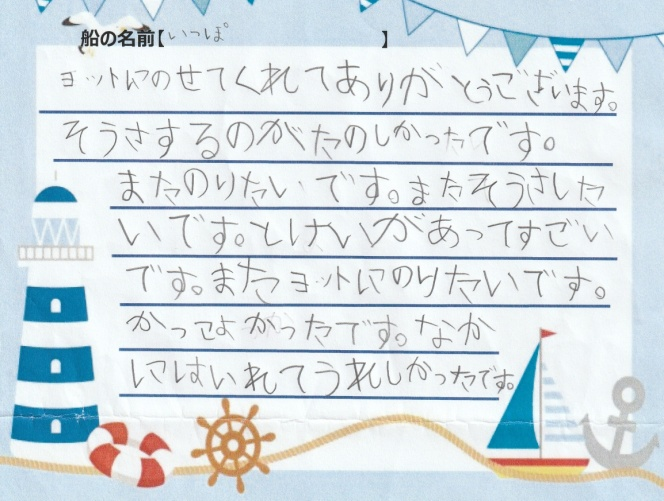 船の名前【いっぽ】
ヨットにのせてくれてありがとうございます。
そうさするのがたのしかったです。
またのりたいです。またそうさした
いです。とけいがあってすごい
です。またヨットにのりたいです。
かっこよかったです。なか
にはいれてうれしかったです。